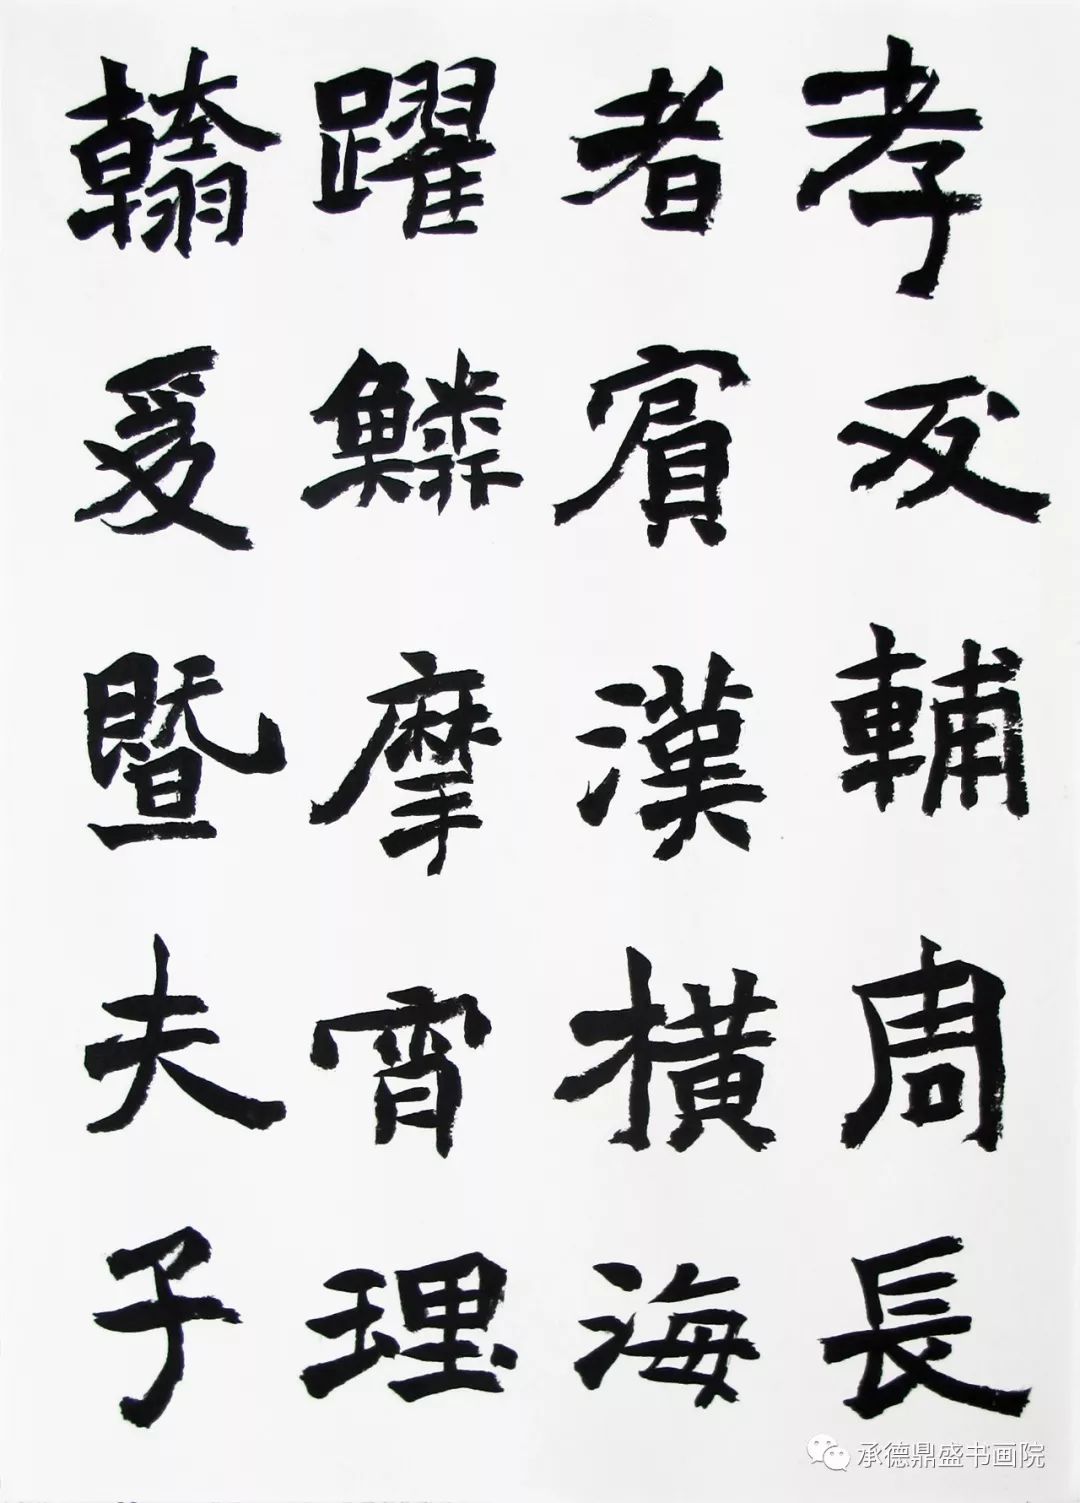 孝友輔周長
者賓漢橫海
躍鱗摩宵理
翰爰暨夫子
承德鼎盛书画院